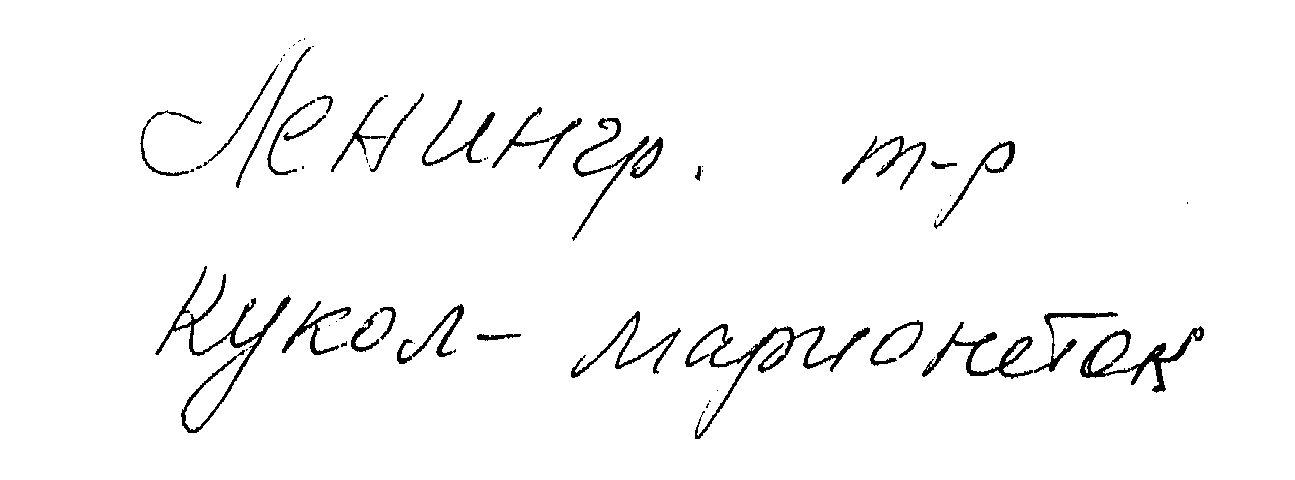 Ленингр. т-р
кукол- марионеток